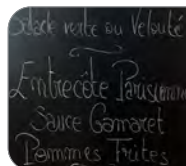 Salade verte ou Velouté
Entrecôte Parisienne
Sauce Gamaret
Pommes Frites